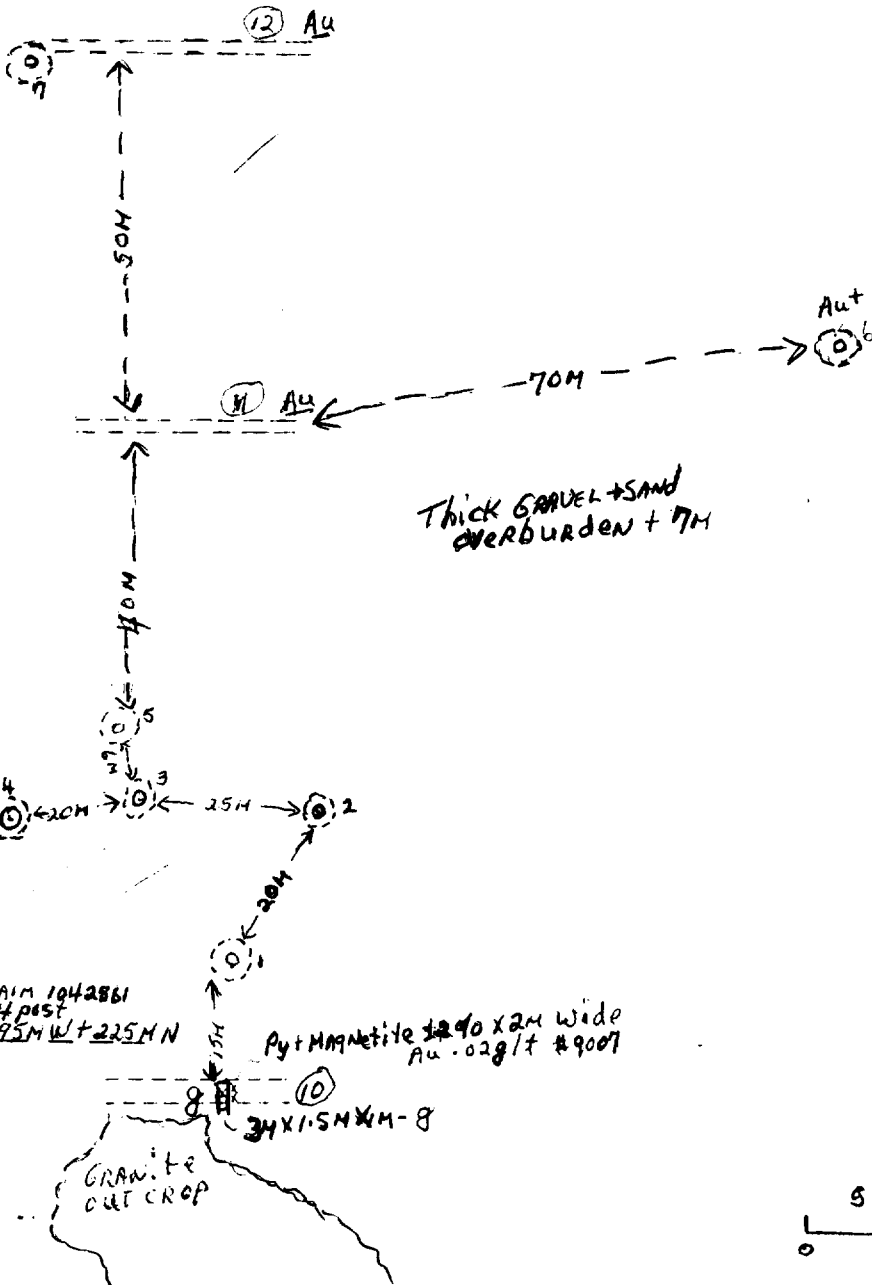 12 Au
7
50M
Au+
6
70M
11 Au
Thick GRAVEL + SAND
OVERBURDEN + 7M
40M
5
6M
4
3
20M
25M
2
20M
1
AIM 1042861
4 post
95M W + 225M N
15M
Py + MAGNetite % X 2M wide
Au .02g/t #9007
8
10
3M X 1.5M X 1M - 8
GRANite
OUTCROP
5
0